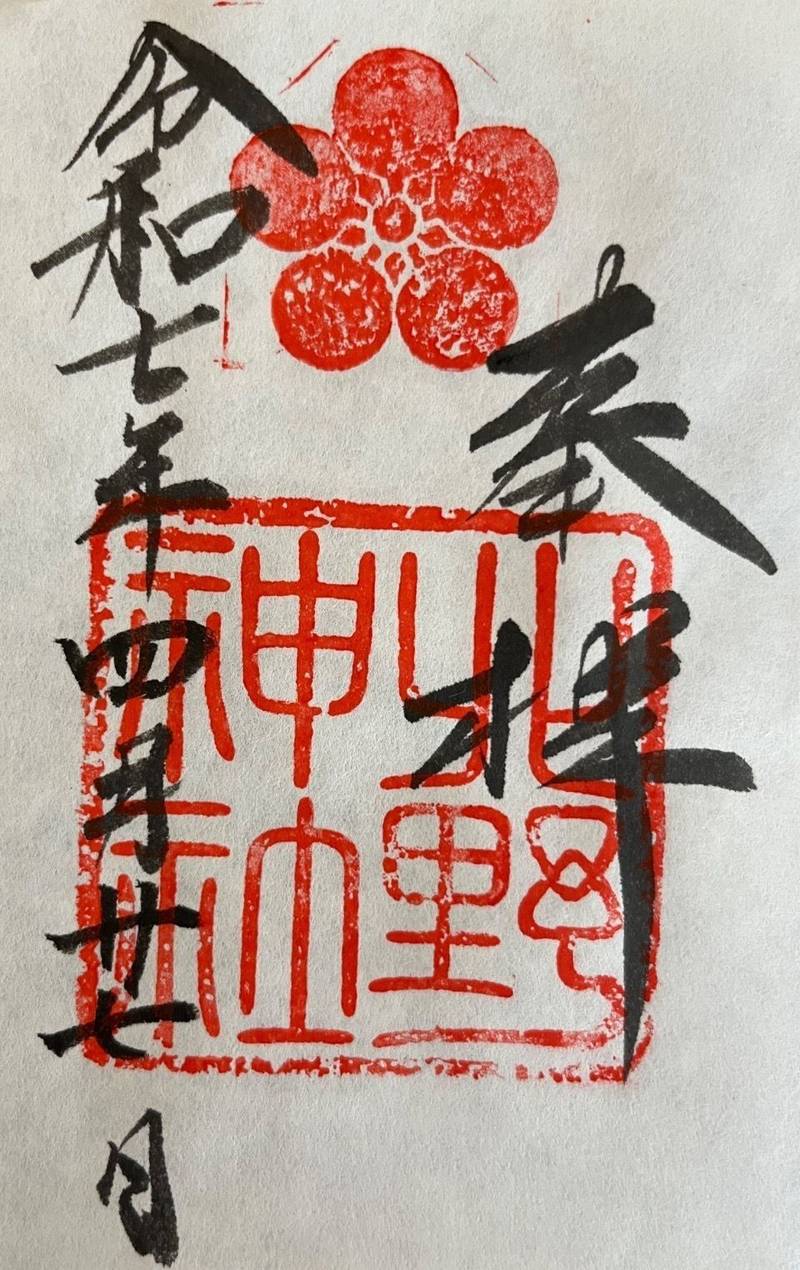 奉拝
北野
神社
令和七年四月廿七日